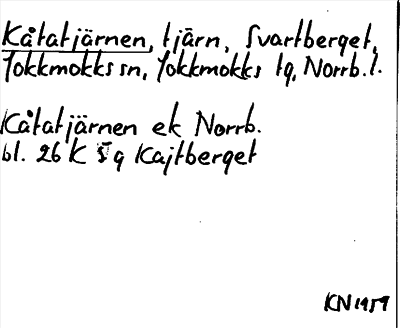 Kåtatjärnen, tjärn, Svartberget,
Jokkmokks sn, Jokkmokks tg, Norrb.l.
Kåtatjärnen ek Norrb.
bl. 26 K 5 g Kajtberget
KN 1959